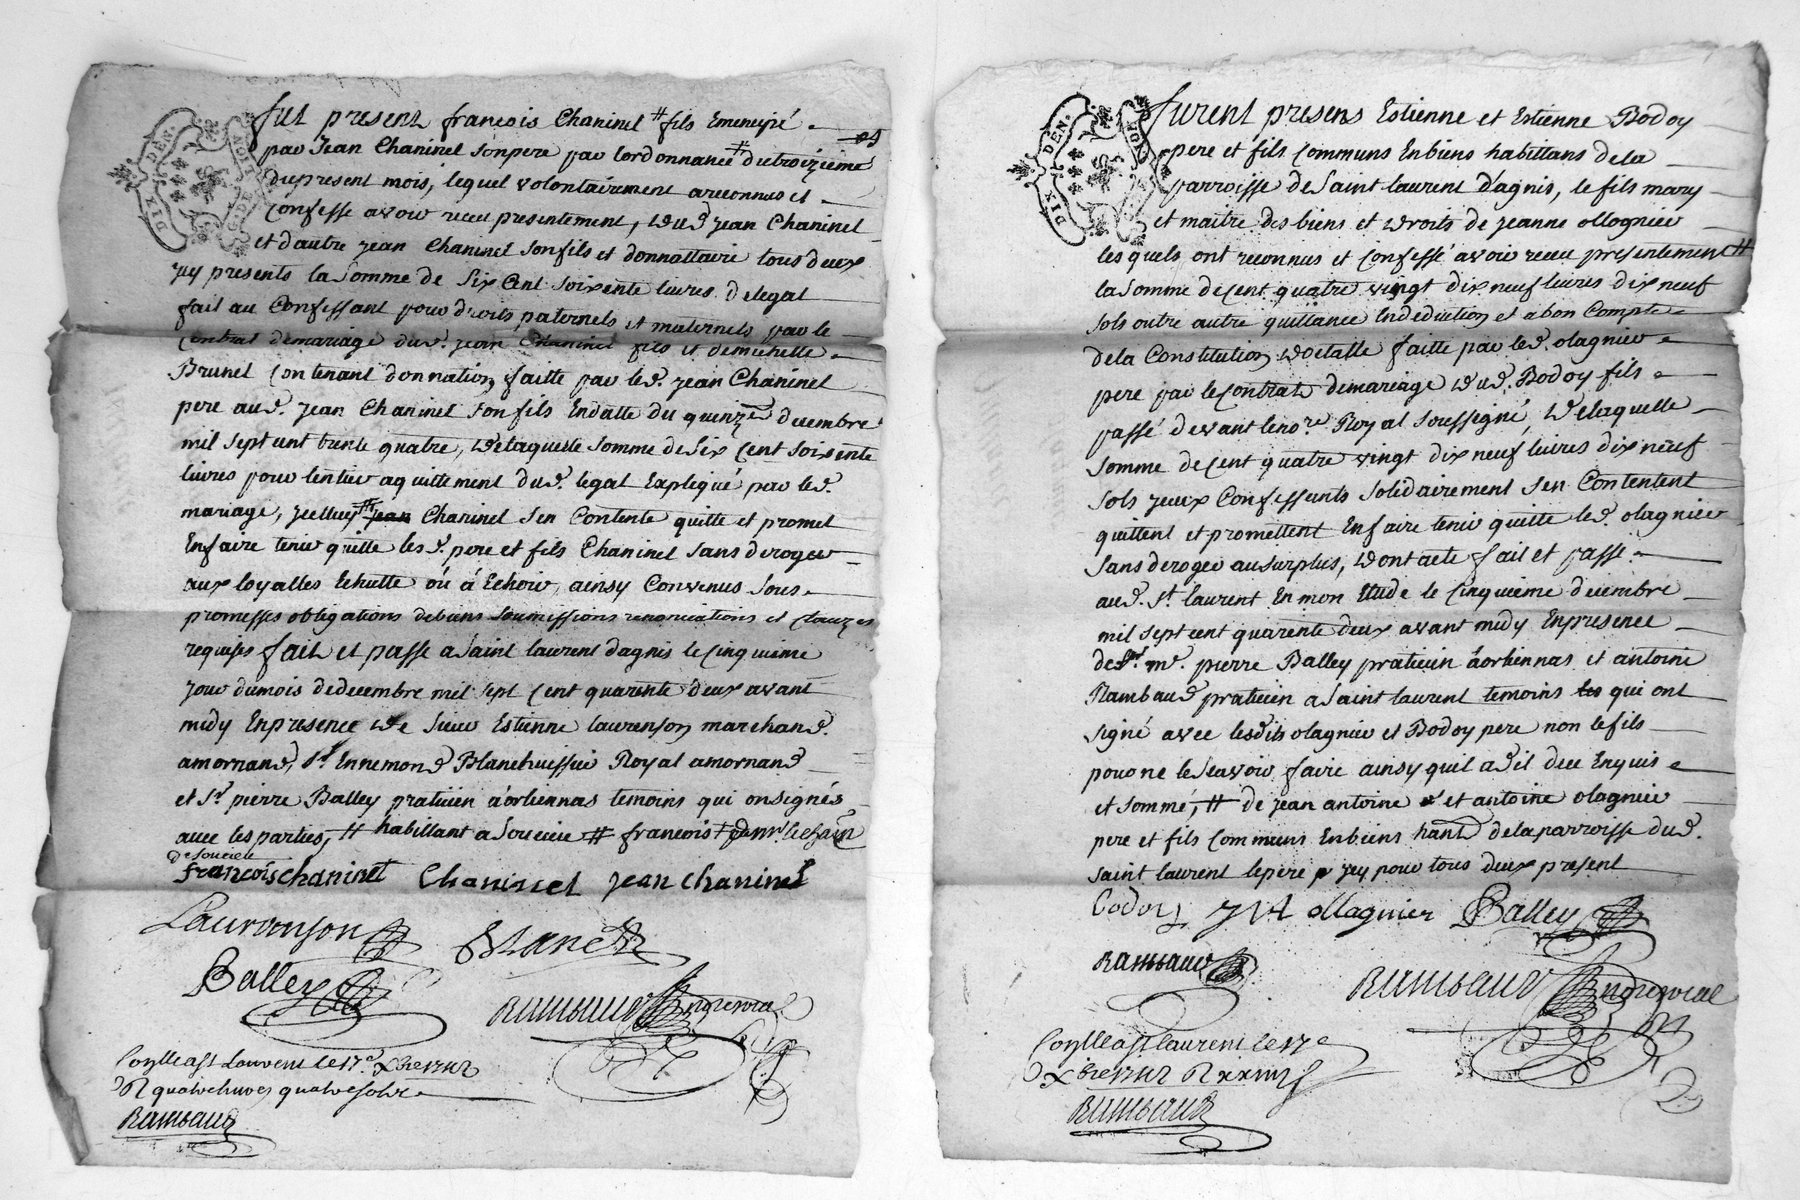 DIX DEN.
MOIT.
G. DE
fut present françois Chaninel # fils Emencipé
par Jean Chaninel son pere par lordonnance # du troizieme
du present mois, lequel volontairement a reconnus et
Confesse avoir receu presentement, dud Jean Chaninel
et dautre jean Chaninel son fils et donnattaire tous deux
jcy presents la somme de Six Cent soixente livres delegat
fait au Confessant pour droits paternels et maternels par le
Contrat demariage dud. jean Chaninel fils et demichelle
Brunel Contenant donnation faitte par led. jean Chaninel
pere aud. jean Chaninel son fils Endatte du quinze decembre
mil sept cent trente quatre, delaquelle somme de Six Cent soixente
livres pour lentier aquittement dud. legat Expliqué par led.
mariage, jcelluy # jean Chaninel sen Contente quitte et promet
Enfaire tenir quitte lesd. pere et fils Chaninel sans deroger
aux loyalles Echutte où à Echoir, ainsy Convenus sous
promesses obligations debiens soumissions renonciations et clauzes
requises fait et passe a Saint laurent dagnis le Cinquieme
jour dumois dedecembre mil sept Cent quarente deux avant
midy Enpresence de Sieur Estienne laurenson marchand
amornand, Sr. Ennemond Blanc huissier Royal amornand
et Sr. pierre Balley praticien àorliennas temoins qui onsignés
avec les parties, # habittant a Soucieu # françois
de Soucieu
françois chaninel Chaninel jean chaninel
Lauranson Blanc
Balley Rambaud
Conlle a St Laurens le 17e
R quatre livres quatre sols
Rambaud
DIX DEN.
furent presens Estienne et Estienne Bodoy
pere et fils Communs Enbiens habittans dela
parroisse de Saint laurent d'agnis, le fils mary
et maitre des biens et droits de jeanne ollognier
lesquels ont reconnus et Confessé avoir receu presentement #
la somme decent quatre vingt dix neuf livres dix neuf
sols outre autre quittance Endeduction et abon Compte
dela Constitution dotalle faitte par led. olagnier
pere par le Contrat demariage dud. Bodoy fils
passé devant leno.re Royal soussigné, delaquelle
somme decent quatre vingt dix neuf livres dix neuf
sols jceux Confessants solidairement sen Contentent
quittent et promettent Enfaire tenir quitte led. olagnier
sans deroger ausurplus, dont acte fait et passé
aud. St. laurent En mon Etude le Cinquieme decembre
mil sept cent quarente deux avant midy Enpresence
de Sr. me. pierre Balley praticien àorliennas et antoine
Rambaud praticien a Saint laurent temoins qui ont
signé avec lesdits olagnier et Bodoy pere non le fils
pour ne lesçavoir faire ainsy quil a dit dece Enquis
et sommé, # de jean antoine et antoine olagnier
pere et fils Communs Enbiens hants dela parroisse dud.
saint laurent lepere jcy pour tous deux present
Bodoy JA ollagnier Balley
Rambaud
Rambaud
Conlle a St laurent le 17e
Rambaud